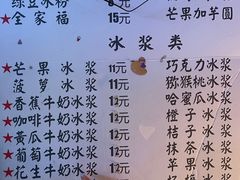 绿豆冰粉 8元
全家福 15元 芒果加芋圆
冰浆类
★芒果冰浆 11元 巧克力冰浆
菠萝冰浆 11元 猕猴桃冰浆
★香蕉牛奶冰浆 12元 哈蜜瓜冰浆
★咖啡牛奶冰浆 12元 橙子冰浆
★黄瓜牛奶冰浆 12元 桔子冰浆
★葡萄牛奶冰浆 12元 抹茶冰浆
★花生牛奶冰浆 12元 苹果冰浆